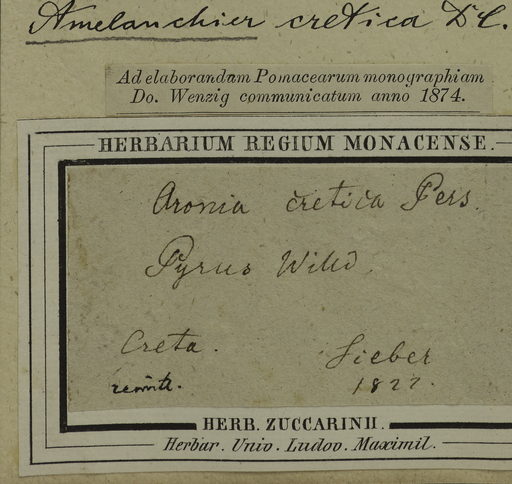 Amelanchier cretica DC.
Ad elaborandam Pomacearum monographiam
Do. Wenzig communicatum anno 1874.
HERBARIUM REGIUM MONACENSE.
Aronia cretica Pers.
Pyrus Willd.
Creta.
Sieber
1827.
HERB. ZUCCARINII.
Herbar. Univ. Ludov. Maximil.